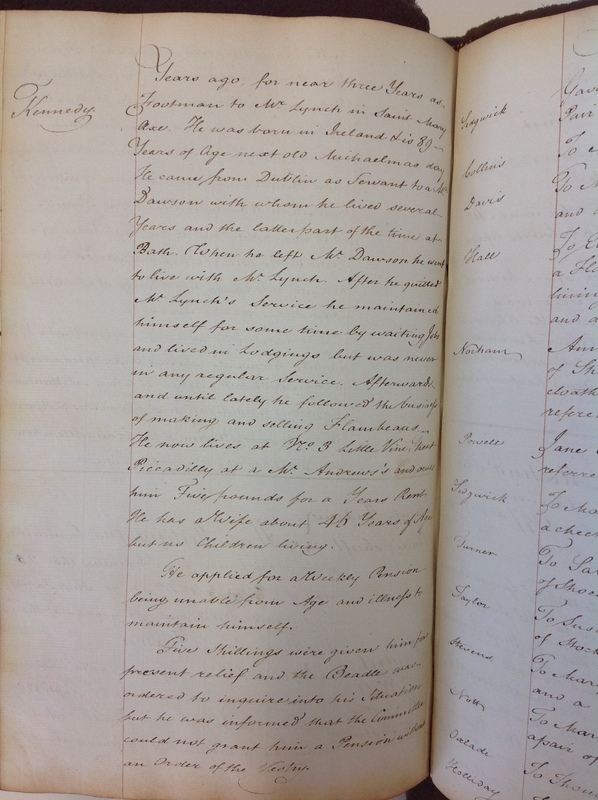 Kennedy
Years ago, for near three Years as
Footman to Mr Lynch in Saint Mary
Axe. He was born in Ireland & is 89
Years of Age next old Michaelmas day
He came from Dublin as Servant to a Mr
Dawson with whom he lived several
Years and the latter part of the time at
Bath. When he left Mr Dawson he went
to live with Mr Lynch. After he quitted
Mr Lynch's Service he maintained
himself for some time by waiting Jobs
and lived in Lodgings but was never
in any regular Service. Afterwards
and until lately he followed the business
of making and selling Flambeaus
He now lives at No 3 Little Vine Street
Piccadilly at a Mr Andrews's and owes
him Five pounds for a Years Rent
He has a Wife about 45 Years of Age
but no Children living.
He applied for a Weekly Pension
being unable from Age and illness to
maintain himself.
Five Shillings were given him for
present relief and the Beadle was
ordered to inquire into his Situation
but he was informed that the Committee
could not grant him a Pension without
an Order of the Vestry.
Sedgwick
Collins
Davis
Hall
Norham
Powell
Sedgwick
Turner
Taylor
Stevens
Nott
Holliday
Gave
Pair
To
To M
and a
To El
a Fl
living
and a
Ann
of Sh
cloath
refere
Jane
referre
To Ma
a chec
To Sa
of Shoe
To Sus
of Stock
To Mar
and a
To Mar
a pair of
To Thom